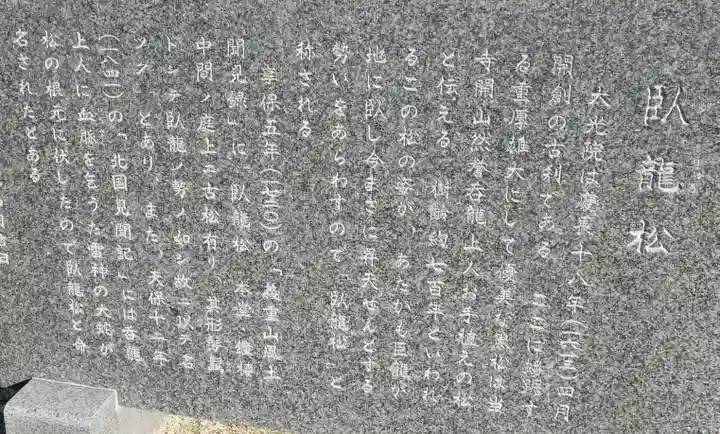 臥龍松
大光院は慶長十八年(一六一三)四月
開創の古刹である ここに蟠踞す
る重厚雄大にして優美な黒松は当
寺開山然誉呑龍上人お手植えの松
と伝える 樹齢約七百年といわれ
るこの松の姿が、あたかも巨龍が
地に臥し今まさに昇天せんとする
勢いをあらわすので「臥龍松」と
称される
享保五年(一七二〇)の「義重山風土
聞見録」に「臥龍松 本堂
中間ノ庭上ニ古松有リ 其形
トシテ臥龍ノ勢ノ如シ故ニ以テ名
ヅク」とあり、また、天保十二年
(一八四一)の「北国見聞記」には呑龍
上人に血脈を乞うた雷神の大蛇が
松の根元に伏したので臥龍松と命
名されたとある